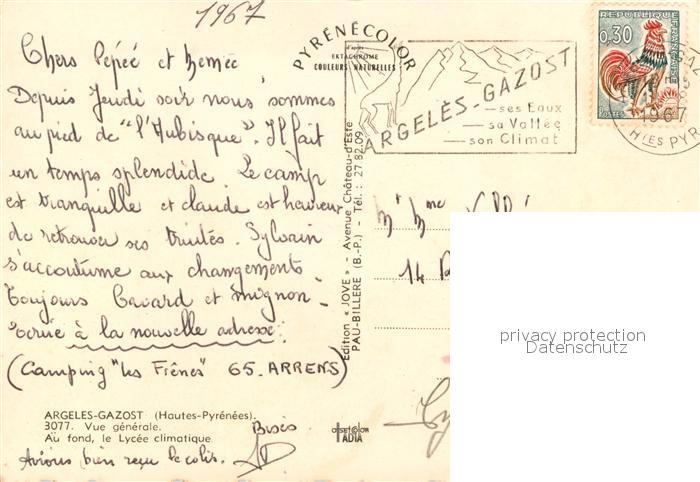 1967
Chers Pépée et Mémée
Depuis Jeudi soir nous sommes
au pied de "l'Aubisque". Il fait
un temps splendide. Le camp
est tranquille et claude est heureux
de retrouver ses truites. Sylvain
s'accoutume aux changements
toujours bavard et mignon-
Ecrire à la nouvelle adresse.
(Camping "les Frênes" 65. ARRENS)
ARGELES-GAZOST (Hautes-Pyrénées).
3077. Vue générale.
Au fond, le Lycée climatique.
Bises
Avions bien reçu le colis.
PYRÉNÉCOLOR
d'après
EKTACHROME
COULEURS NATURELLES
Edition « JOVE » - Avenue Château-d'Este
PAU-BILLERE (B.-P.) - Tél. : 27 82.09
OFFSETCOLOR
IADIA
ARGELÈS-GAZOST
ses Eaux
sa Vallée
son Climat
REPUBLIQUE
FRANÇAISE
0,30
POSTES
1967
HTES PYR
Mr Mme
14
privacy protection
Datenschutz